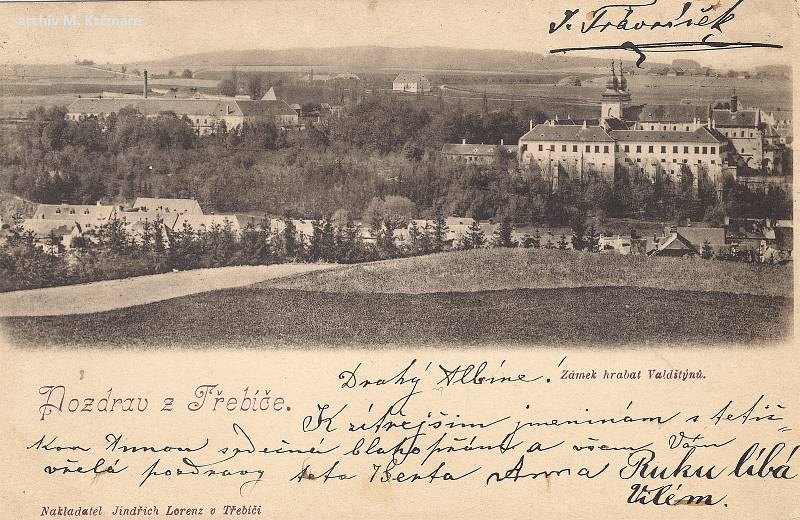 archiv M. Krčmáře
J. Trávoršek
Drahý Albíne!
Zámek hrabat Valdštýnů.
Pozdrav z Třebíče.
K zítřejším jmeninám s tetič-
kou Annou srdečné blahopřání a všem Vám
vřelé pozdravy teta Berta Anna Ruku líbá
Vilém.
Nakladatel Jindřich Lorenz v Třebíči